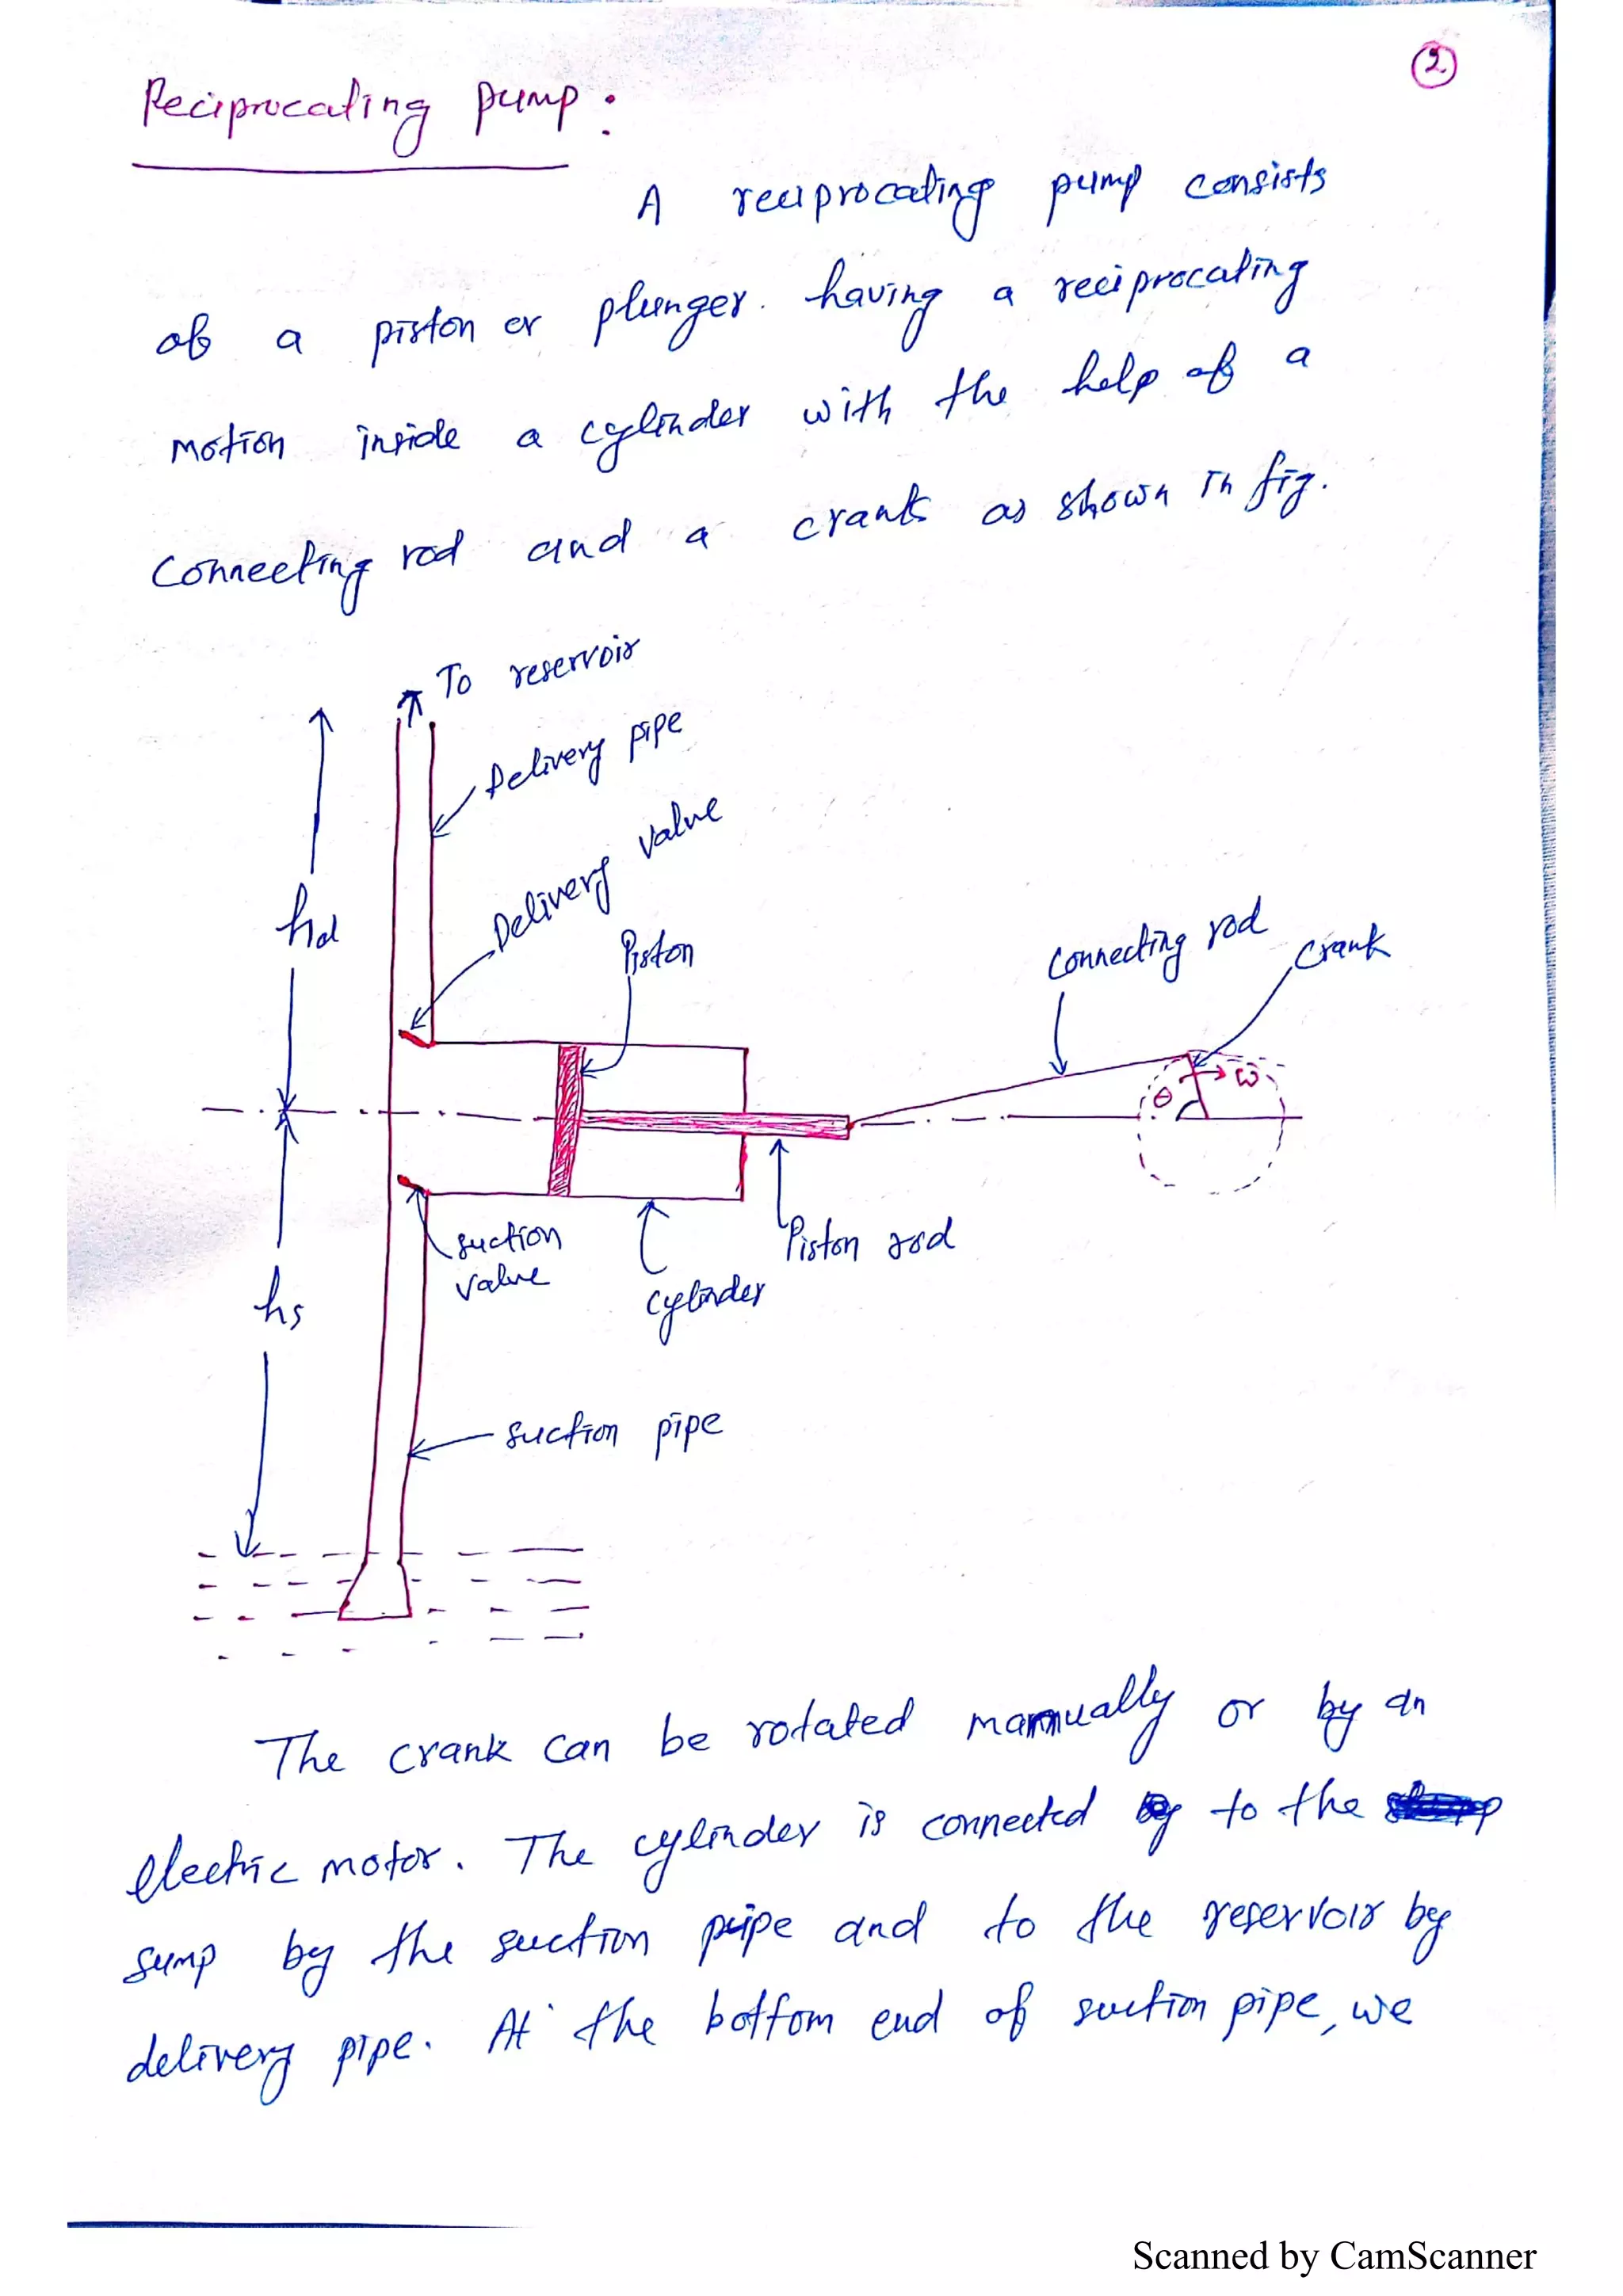 2
Reciprocating pump :
A reciprocating pump consists
of a piston or plunger. having a reciprocating
motion inside a cylinder with the help of a
Connecting rod and a crank as shown in fig.
To reservoir
Delivery pipe
Delivery valve
Piston
hd
Connecting rod
Crank
θ
ω
suction
valve
Piston rod
cylinder
hs
suction pipe
The crank can be rotated mannually or by an
electric motor. The cylinder is connected to the
sump by the suction pipe and to the reservoir by
delivery pipe. At the bottom end of suction pipe, we
Scanned by CamScanner